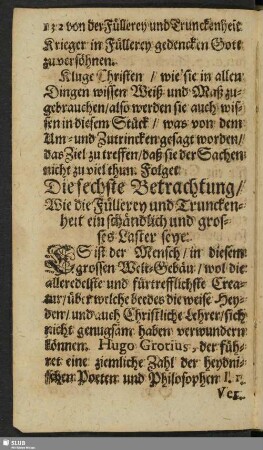 132 von der Füllerey und Trunckenheit
Krieger in Füllerey gedencken Gott
zu versöhnen.
Kluge Christen / wie sie in allen
Dingen wissen Weiß und Maß zu-
gebrauchen / also werden sie auch wis-
sen in diesem Stück / was von dem
Um- und Zutrincken gesagt worden /
das Ziel zu treffen / daß sie der Sachen
nicht zu viel thun. Folget
Die sechste Betrachtung /
Wie die Füllerey und Truncken-
heit ein schändlich und gros-
ses Laster seye.
ES ist der Mensch / in diesem
grossen Welt-Gebäu / wol die
alleredelste und fürtrefflichste Crea-
tur / über welche beedes die weise Hey-
den / und auch Christliche Lehrer / sich
nicht genugsam haben verwundern
können. Hugo Grotius, der füh-
ret eine ziemliche Zahl der heydni-
schen Poeten und Philosophen
SLUB